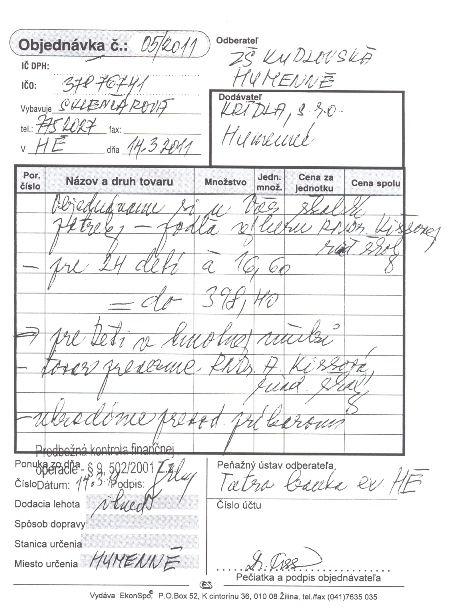 Objednávka č.: 05/2011
Odberateľ
ZŠ KUDLOVSKÁ
HUMENNÉ
IČ DPH:
IČO: 37876741
Vybavuje SKLENÁROVÁ
tel.: 7752027 fax:
V HÉ dňa 14.3.2011
Dodávateľ
KRÍDLA, s.r.o.
Humenné
Por. číslo Názov a druh tovaru Množstvo Jedn. množ. Cena za jednotku Cena spolu
Objednávame si u Vás školské
potreby – podľa výberu RNDr. Kissovej
riad. školy
– pre 24 detí á 16,60
= do 398,40
→ pre deti v hmotnej núdzi
– tovar prevezme RNDr. A. Kissová,
riad. školy
– uhradíme prevod. príkazom
Predbežná kontrola finančnej
operácie - § 9, 502/2001 Z.z.
Ponuka zo dňa
Číslo Dátum: 14.3. Podpis:
Dodacia lehota ihneď
Spôsob dopravy
Stanica určenia
Miesto určenia HUMENNÉ
Peňažný ústav odberateľa,
Tatra banka ex HÉ
Číslo účtu
Pečiatka a podpis objednávateľa
Vydáva EkonSpo, P.O.Box 52, K cintorínu 36, 010 08 Žilina, tel./fax (041)7635 035